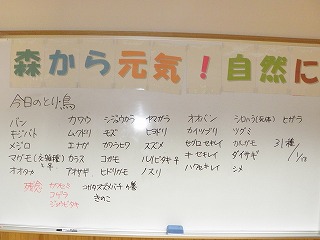 森から元気！自然に
今日のとり鳥
バン カワウ シジュウカラ ヤマガラ オオバン シロハラ(死体) ヒガラ
キジバト ムクドリ モズ ヒヨドリ カイツブリ ツグミ
メジロ エナガ カワラヒワ スズメ セグロセキレイ カルガモ 31種
マガモ カラス コガモ ルリビタキ♀ キセキレイ ダイサギ 1/13
オオタカ アオサギ ヒドリガモ ノスリ ハクセキレイ シメ
カワセミ コガタスズメバチの巣
コゲラ きのこ
ジョウビタキ